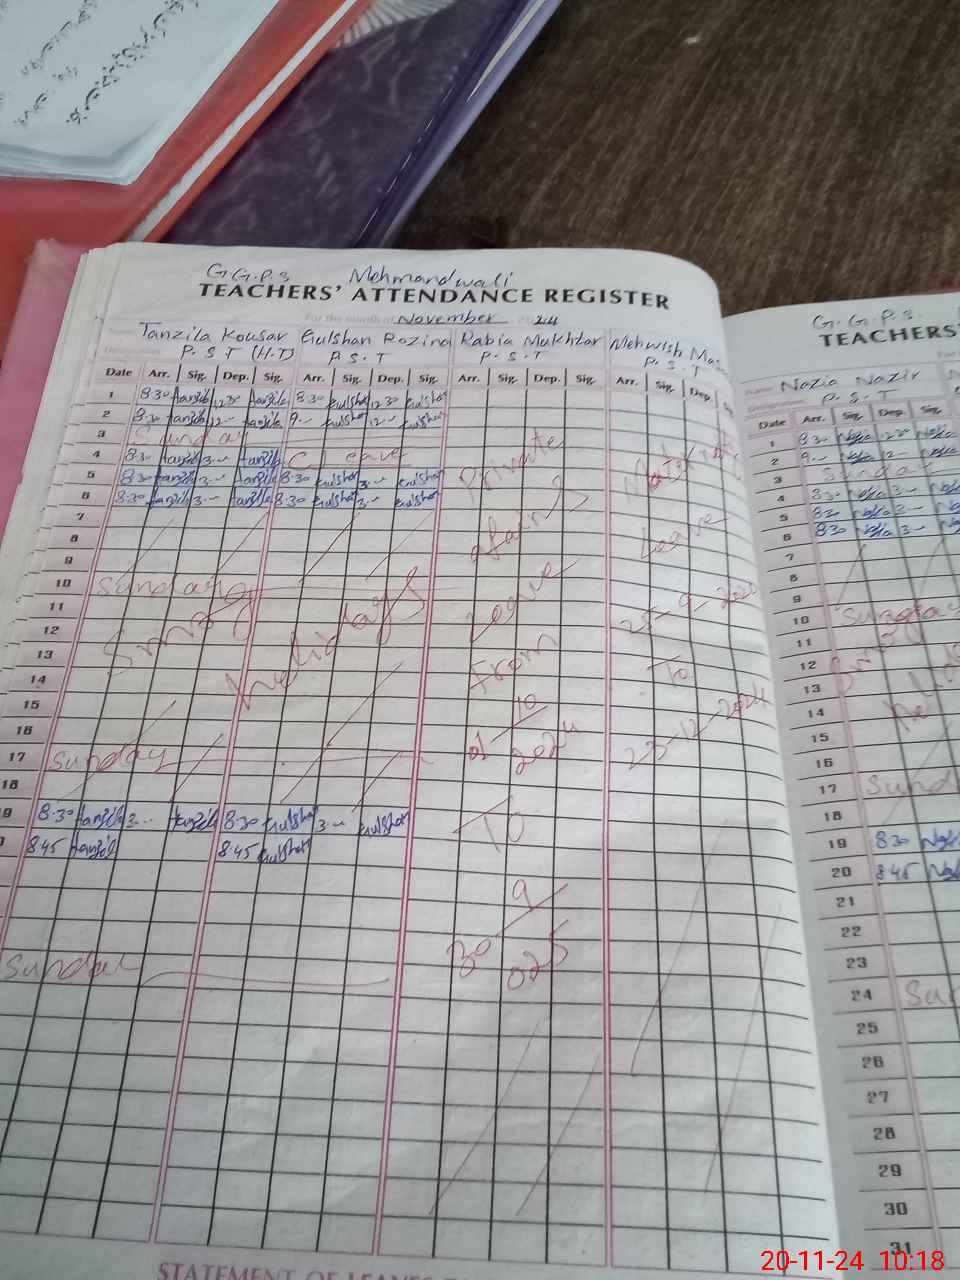 G G.P.S. Mehmandwali
TEACHERS' ATTENDANCE REGISTER
For the month of November 2024
Tanzila Kousar Gulshan Rozina Rabia Mukhtar Mehwish
P.S.T (H.T) P.S.T P.S.T P.S.T
Date Arr. Sig. Dep. Sig. Arr. Sig. Dep. Sig. Arr. Sig. Dep. Sig. Arr. Sig. Dep.
1 8:30 Tanzila 12:30 Tanzila 8:30 Gulshan 12:30 Gulshan
2 8:30 Tanzila 12-- Tanzila 9-- Gulshan 12-- Gulshan
3 Sunday
4 8:30 Tanzila 3-- Tanzila C Leave
5 8:30 Tanzila 3-- Tanzila 8:30 Gulshan 3-- Gulshan
6 8:30 Tanzila 3-- Tanzila 8:30 Gulshan 3-- Gulshan
7
8
9
10 Sunday
11
12
13
14
15
16
17 Sunday
18
19 8:30 Tanzila 3-- Tanzila 8:30 Gulshan 3-- Gulshan
8:45 Tanzila 8:45 Gulshan
Sunday
Smog Holidays
Private
Leave
From
01-10
2024
To
30 9
025
Leave
To
23-12-2024
STATEMENT OF LEAVES
G. G. P. S.
TEACHERS'
Nazia Nazir
P.S.T
Date Arr. Sig. Dep. Sig.
1 8:30 Nazia 12:30 Nazia
2 9-- Nazia 12-- Nazia
3 Sunday
4 8:30 Nazia 3-- Nazia
5 8:30 Nazia 3-- Nazia
6 8:30 Nazia 3-- Nazia
7
8
9
10 Sunday
11
12
13
14
15
16
17 Sund
18
19 8:30
20 8:45
21
22
23
24 Su
25
26
27
28
29
30
31
20-11-24 10:18